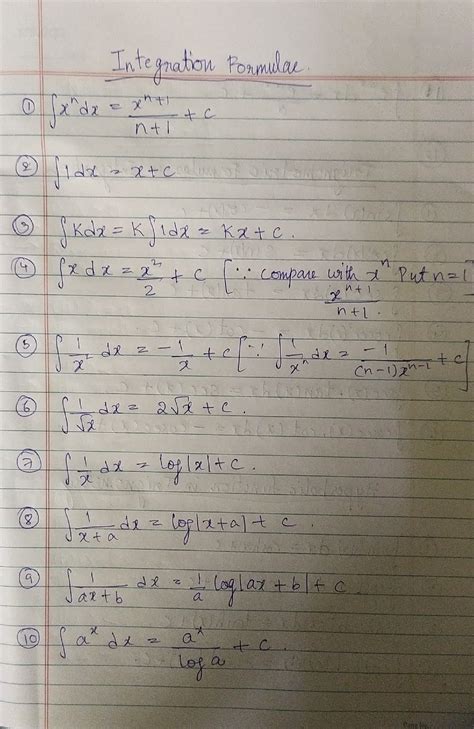 Integration Formulae.
① ∫xⁿdx = xⁿ⁺¹/n+1 + c
② ∫1dx = x+c
③ ∫Kdx = K∫1dx = Kx + c.
④ ∫x dx = x²/2 + c [∵ compare with xⁿ Put n=1
xⁿ⁺¹/n+1.
⑤ ∫1/x² dx = -1/x + c [∵ ∫1/xⁿ dx = -1/(n-1)xⁿ⁻¹ + c]
⑥ ∫1/√x dx = 2√x + c.
⑦ ∫1/x dx = log|x| + c.
⑧ ∫1/x+a dx = log|x+a| + c.
⑨ ∫1/ax+b dx = 1/a log|ax+b| + c
⑩ ∫aˣ dx = aˣ/log a + c.